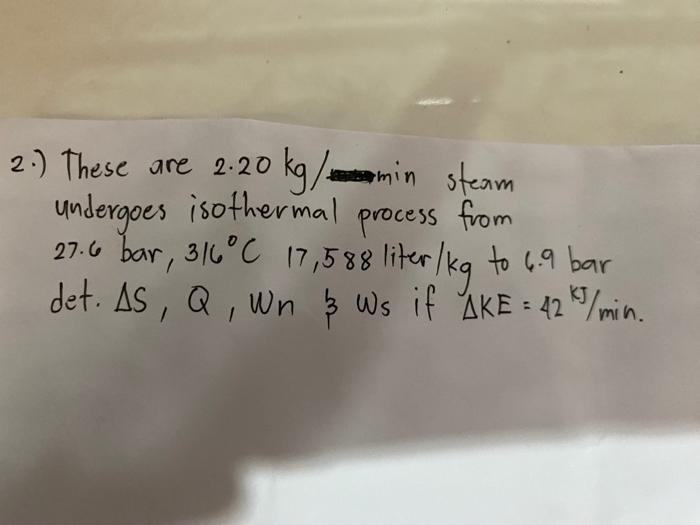 2.) These are 2.20 kg/min steam
undergoes isothermal process from
27.6 bar, 316°C 17,588 liter/kg to 6.9 bar
det. ΔS, Q, Wn & Ws if ΔKE = 42 KJ/min.